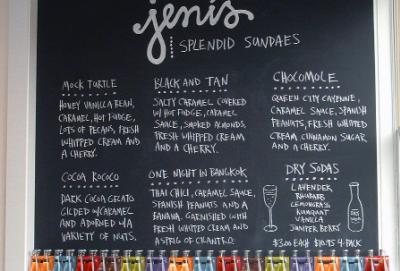 jeni's
SPLENDID SUNDAES
MOCK TURTLE
HONEY VANILLA BEAN,
CARAMEL, HOT FUDGE,
LOTS OF PECANS, FRESH
WHIPPED CREAM AND
A CHERRY.
BLACK AND TAN
SALTY CARAMEL COVERED
W/ HOT FUDGE, CARAMEL
SAUCE, SMOKED ALMONDS,
FRESH WHIPPED CREAM
AND A CHERRY.
CHOCOMOLE
QUEEN CITY CAYENNE,
CARAMEL SAUCE, SPANISH
PEANUTS, FRESH WHIPPED
CREAM, CINNAMON SUGAR
AND A CHERRY.
COCOA ROCOCO
DARK COCOA GELATO
GILDED W/ CARAMEL
AND ADORNED W/ A
VARIETY OF NUTS.
ONE NIGHT IN BANGKOK
THAI CHILI, CARAMEL SAUCE,
SPANISH PEANUTS AND A
BANANA. GARNISHED WITH
FRESH WHIPPED CREAM AND
A SPRIG OF CILANTRO.
DRY SODAS
LAVENDER
RHUBARB
LEMONGRASS
KUMQUAT
VANILLA
JUNIPER BERRY
DRY
$3.00 EACH $10.95 4-PACK